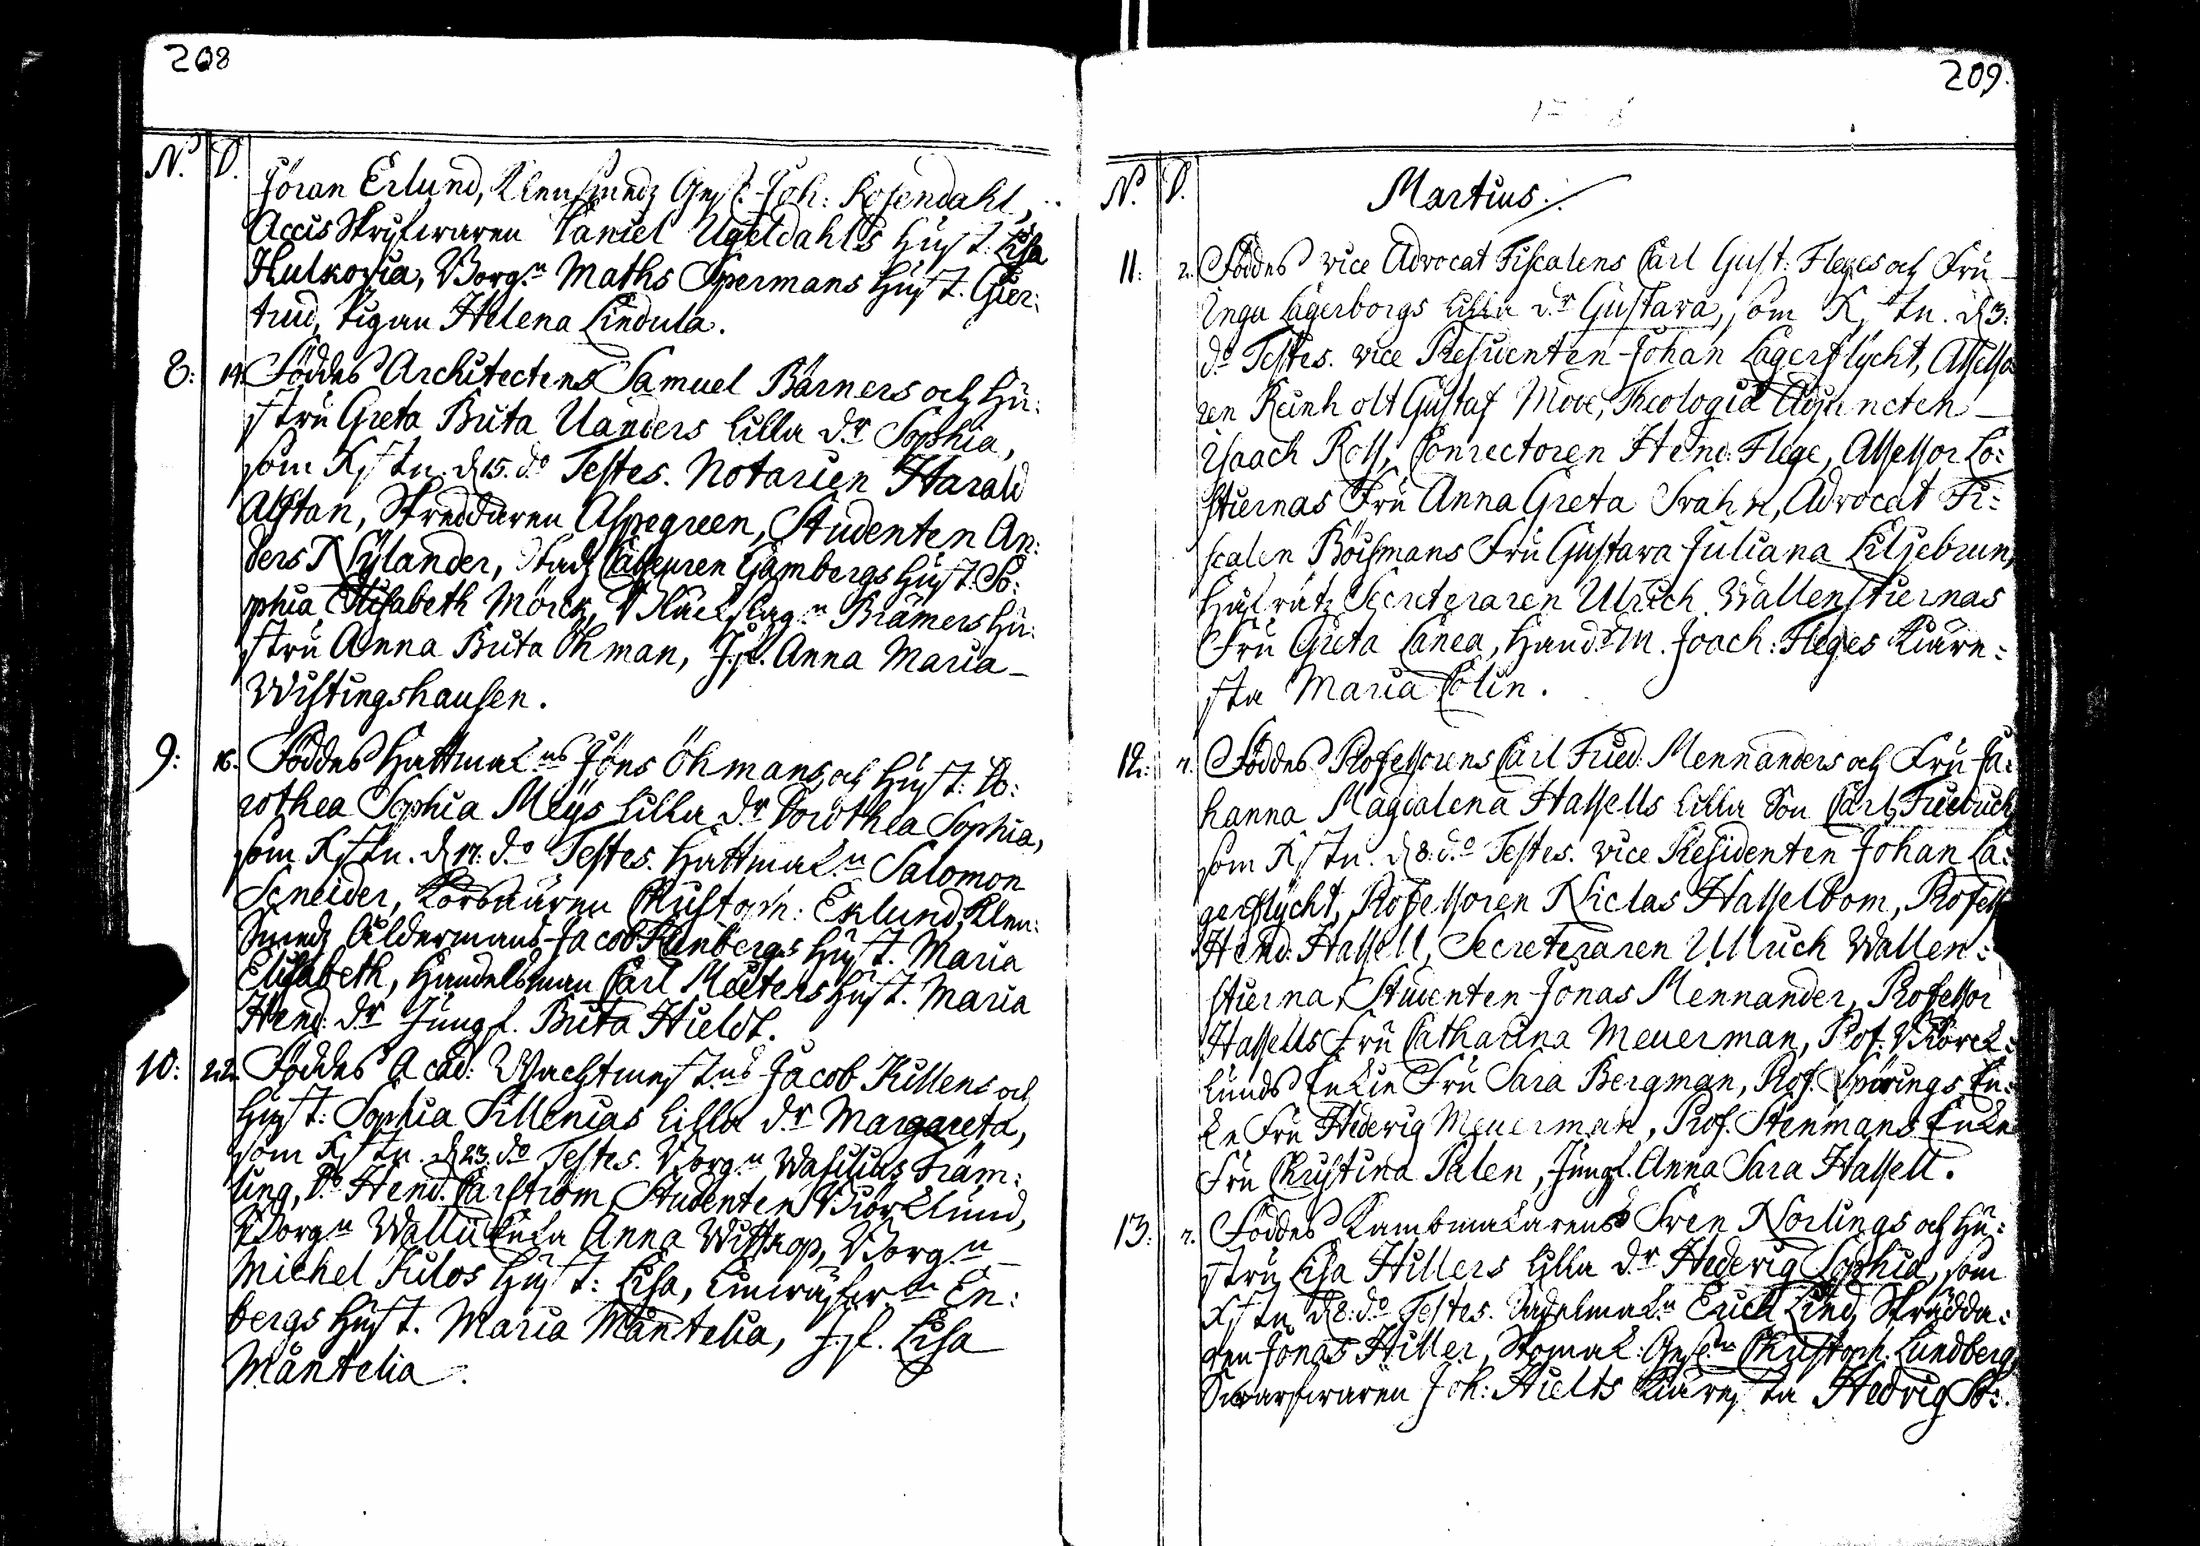 208
N. D.
Jöran Erlund, Klensmedz Ges: Joh: Rosendahl,
Accis Skrifwaren Daniel Ugeldahls Hust. Lisa
Hulkovia, Borg.n Maths Spermans Hust. Gier:
trud, Pigan Helena Lindula.
8: 14. Föddes Architectens Samuel Bärners och Hu:
stru Greta Brita Uanders lilla d.r Sophia,
som Xstn. d 15. d.o Testes. Notarien Harald
Alftan, Skreddaren Aspegreen, Studenten An:
ders Nylander, Stadz Casseuren Gambergs Hust. So:
phia Elisabeth Mörck, Kläckslag.n Brämers Hu:
stru Anna Brita Öhman, J.fl. Anna Maria
Wistingshausen.
9: 16. Föddes Hattmak.ns Jöns Öhmans och Hust: Do:
rothea Sophia Meijs lilla d.r Dorothea Sophia,
som Xstn. d 17. d.o Testes. Hattmak.n Salomon
Scneider, Corduaren Christoph: Eklund, Klen:
Smedz Åldermans Jacob Hinbergs Hust. Maria
Elisabeth, Handelsman Carl Meetens Hust. Maria
Hend: d.r Jungf. Brita Hieldt.
10: 22. Föddes Acad: Wachtmest.ns Jacob Killens och
Hust: Sophia Sillenias lilla d.r Margareta,
som Xstn. d 23. d.o Testes. Borg.n Wasilius Främ:
ling, D.o Hend. Carström, Studenten Biörklund,
Borg.n Anna Borg.n
Michel Kulos Hust: Lisa, Linwäfw.n En:
bergs Hust. Maria Mäntelia, J.fl. Lisa
Mäntelia.
209.
N. D.
Martius.
11: 2. Föddes vice Advocat Fiscalens Carl Gust: Fleges och Fru
Inga Lagerborgs lilla d.r Gustava, som Xstn. d 3.
d.o Testes. vice Presidenten Johan Lagerflycht, Assesso
ren Reinholt Gustaf Move, Theologiæ Adjuncten
Isaach Ross, Conrectoren Hend: Flege, Assessor Lo:
stiernas Fru Anna Greta Svahn, Advocat Fi:
scalen Böismans Fru Gustava Juliana Liljebrun,
Håfrätz Secreteraren Ulrich Wallenstiernas
Fru Greta Canea, Hand.sm. Joach: Fleges Kiäre:
sta Maria Colin.
12: 7. Föddes Professorens Carl Fried: Mennanders och Fru Jo:
hanna Magdalena Hassells lilla Son Carl Friedrich
som Xstn. d 8. d.o Testes. vice Presidenten Johan La:
gerflycht, Professoren Niclas Hasselbom, Profess
Hend: Hassell, Secreteraren Ulrich Wallen:
stierna, Studenten Jonas Mennander, Professor
Hassells Fru Catharina Meuerman, Prof. Biörck:
lunds Enkie Fru Sara Bergman, Prof. Spörings En:
ke Fru Hedvig Meuerman, Prof. Stenmans Enke
Fru Christina Palen, Jungf. Anna Sara Hassell.
13: 7. Föddes Kambmakarens Sven Norlings och Hu:
stru Lisa Hillers lilla d.r Hedvig Sophia, som
Xstn. d 8. d.o Testes. Sadelmak.n Erick Lind, Skrädda:
ren Jonas Hiller, Skomak. Ges.n Christoph: Lundberg,
Swarfwaren Joh: Hielts Kiäresta Hedvig So: